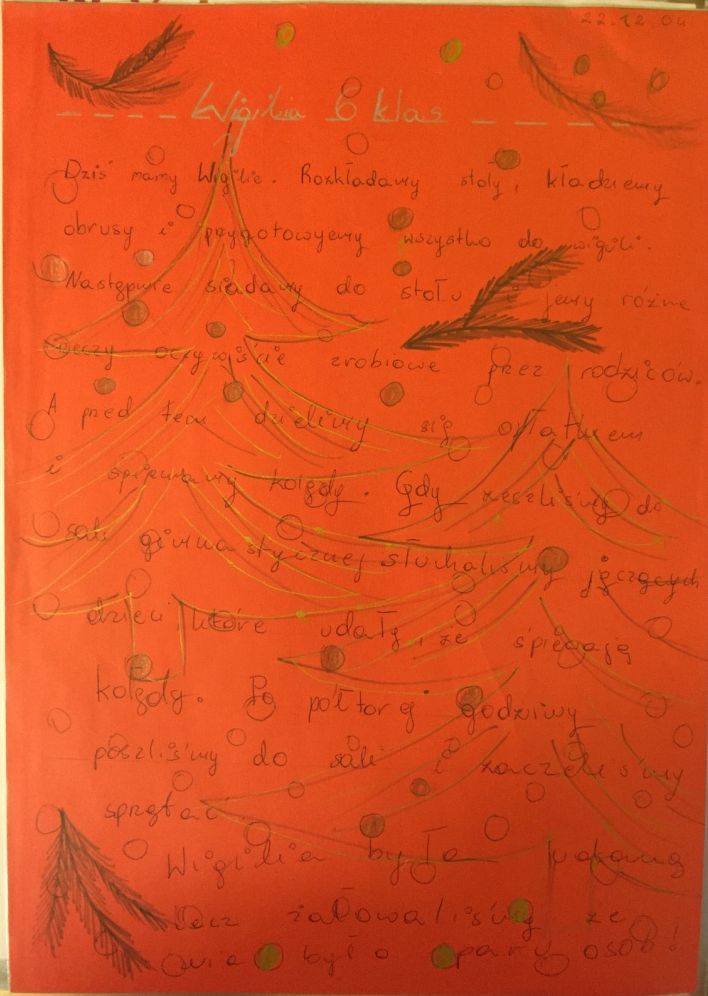 22.12.04
Wigilia 6 klas
Dziś mamy Wigilie. Rozkładamy stoły, kładziemy
obrusy i przygotowyemy wszystko do wigili.
Następnie siadamy do stołu i jemy różne
rzeczy oczywiście zrobione przez rodziców.
A przed tem dzielimy się opłatkiem
i śpiewamy kolędy. Gdy zeszliśmy do
sali gimnastycznej słuchaliśmy jęczących
dzieci które udały, że śpiegają
kolędy. Po półtorej godziny
poszliśmy do sali i zaczeliśmy
sprzątać
Wigilia była udana
lecz żałowaliśmy że
nie było pary osób!